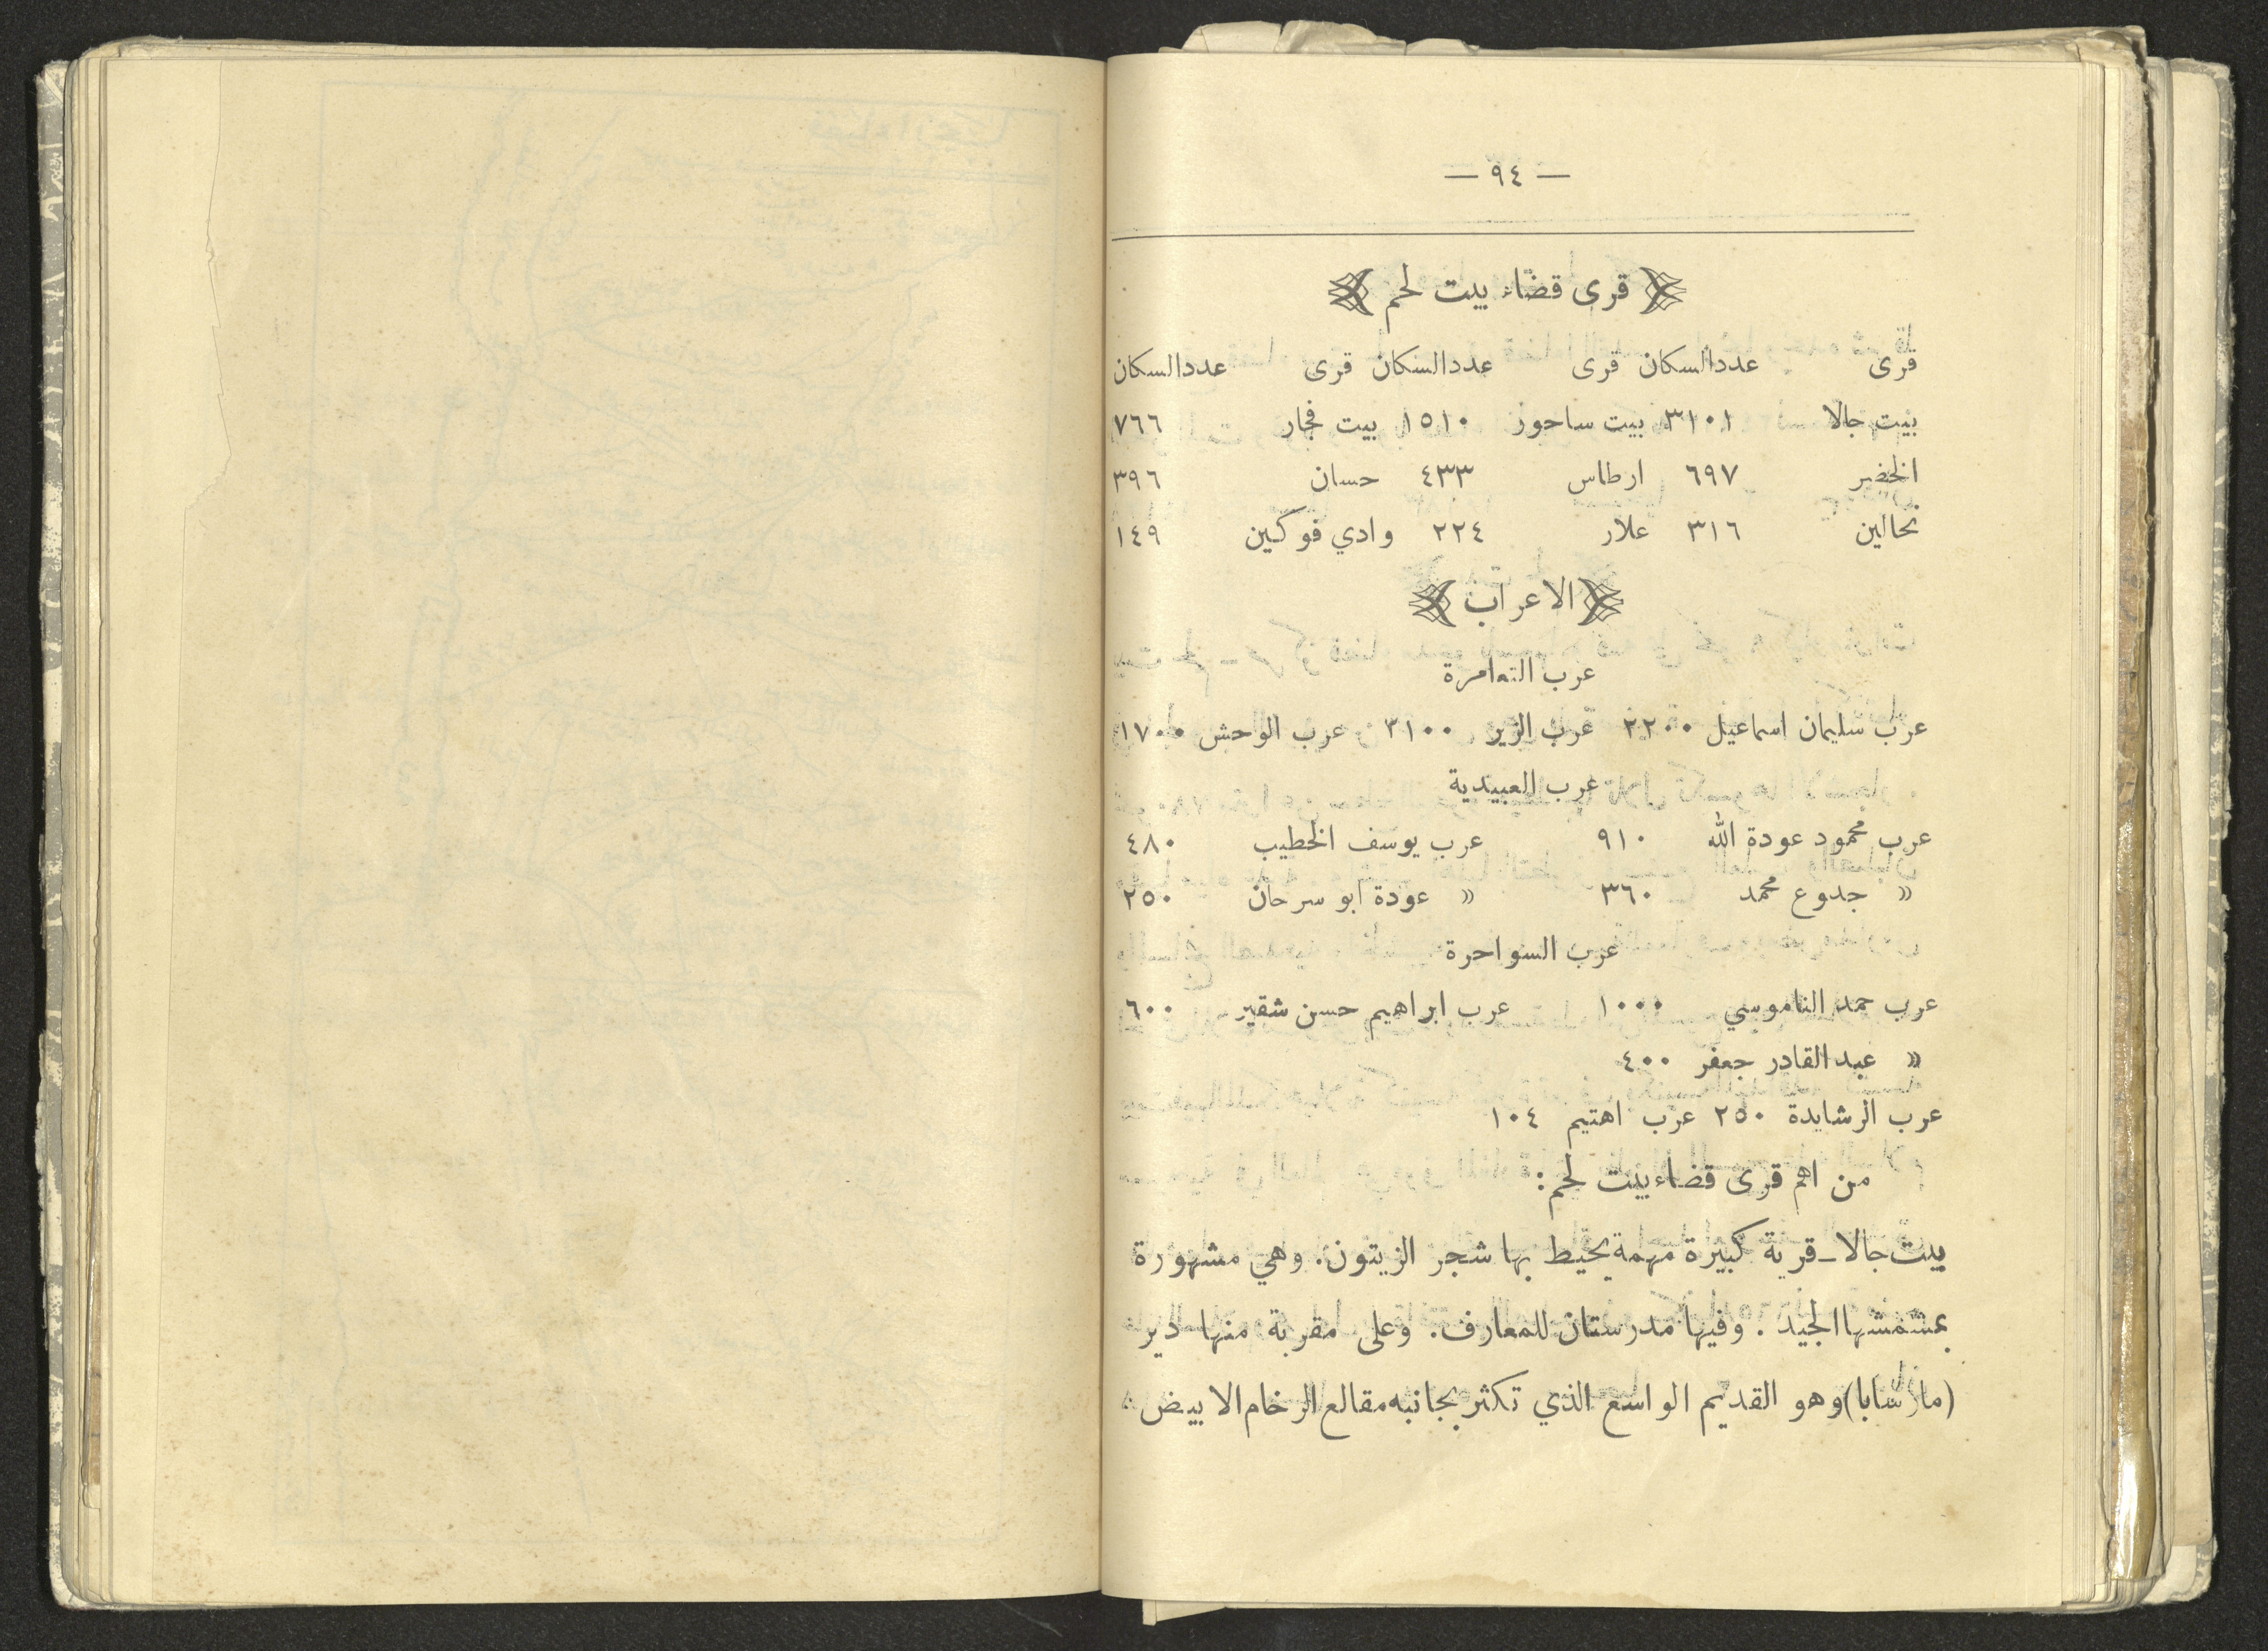 — ٩٤ —
قرى قضاء بيت لحم
قرى عدد السكان قرى عدد السكان قرى عدد السكان
بيت جالا ٣١٠١ بيت ساحور ١٥١٠ بيت فجار ٧٦٦
الخضر ٦٩٧ ارطاس ٤٣٣ حسان ٣٩٦
نحالين ٣١٦ علار ٢٢٤ وادي فوكين ١٤٩
الاعراب
عرب التعامرة
عرب سليمان اسماعيل ٢٢٠٠ عرب الزير ٣١٠٠ عرب الوحش ١٧٠٠
عرب العبيدية
عرب محمود عودة الله ٩١٠ عرب يوسف الخطيب ٤٨٠
« جدوع محمد ٣٦٠ « عودة ابو سرحان ٢٥٠
عرب السواحرة
عرب حمد الناموسي ١٠٠٠ عرب ابراهيم حسن شقير ٦٠٠
« عبد القادر جعفر ٤٠٠
عرب الرشايدة ٢٥٠ عرب اهتيم ١٠٤
من اهم قرى قضاء بيت لحم :
بيت جالا ــ قرية كبيرة مهمة يحيط بها شجر الزيتون . وهي مشهورة
بمشمشها الجيد . وفيها مدرستان للمعارف . وعلى مقربة منها دير
(مارسابا) وهو القديم الواسع الذي تكثر بجانبه مقالع الرخام الابيض